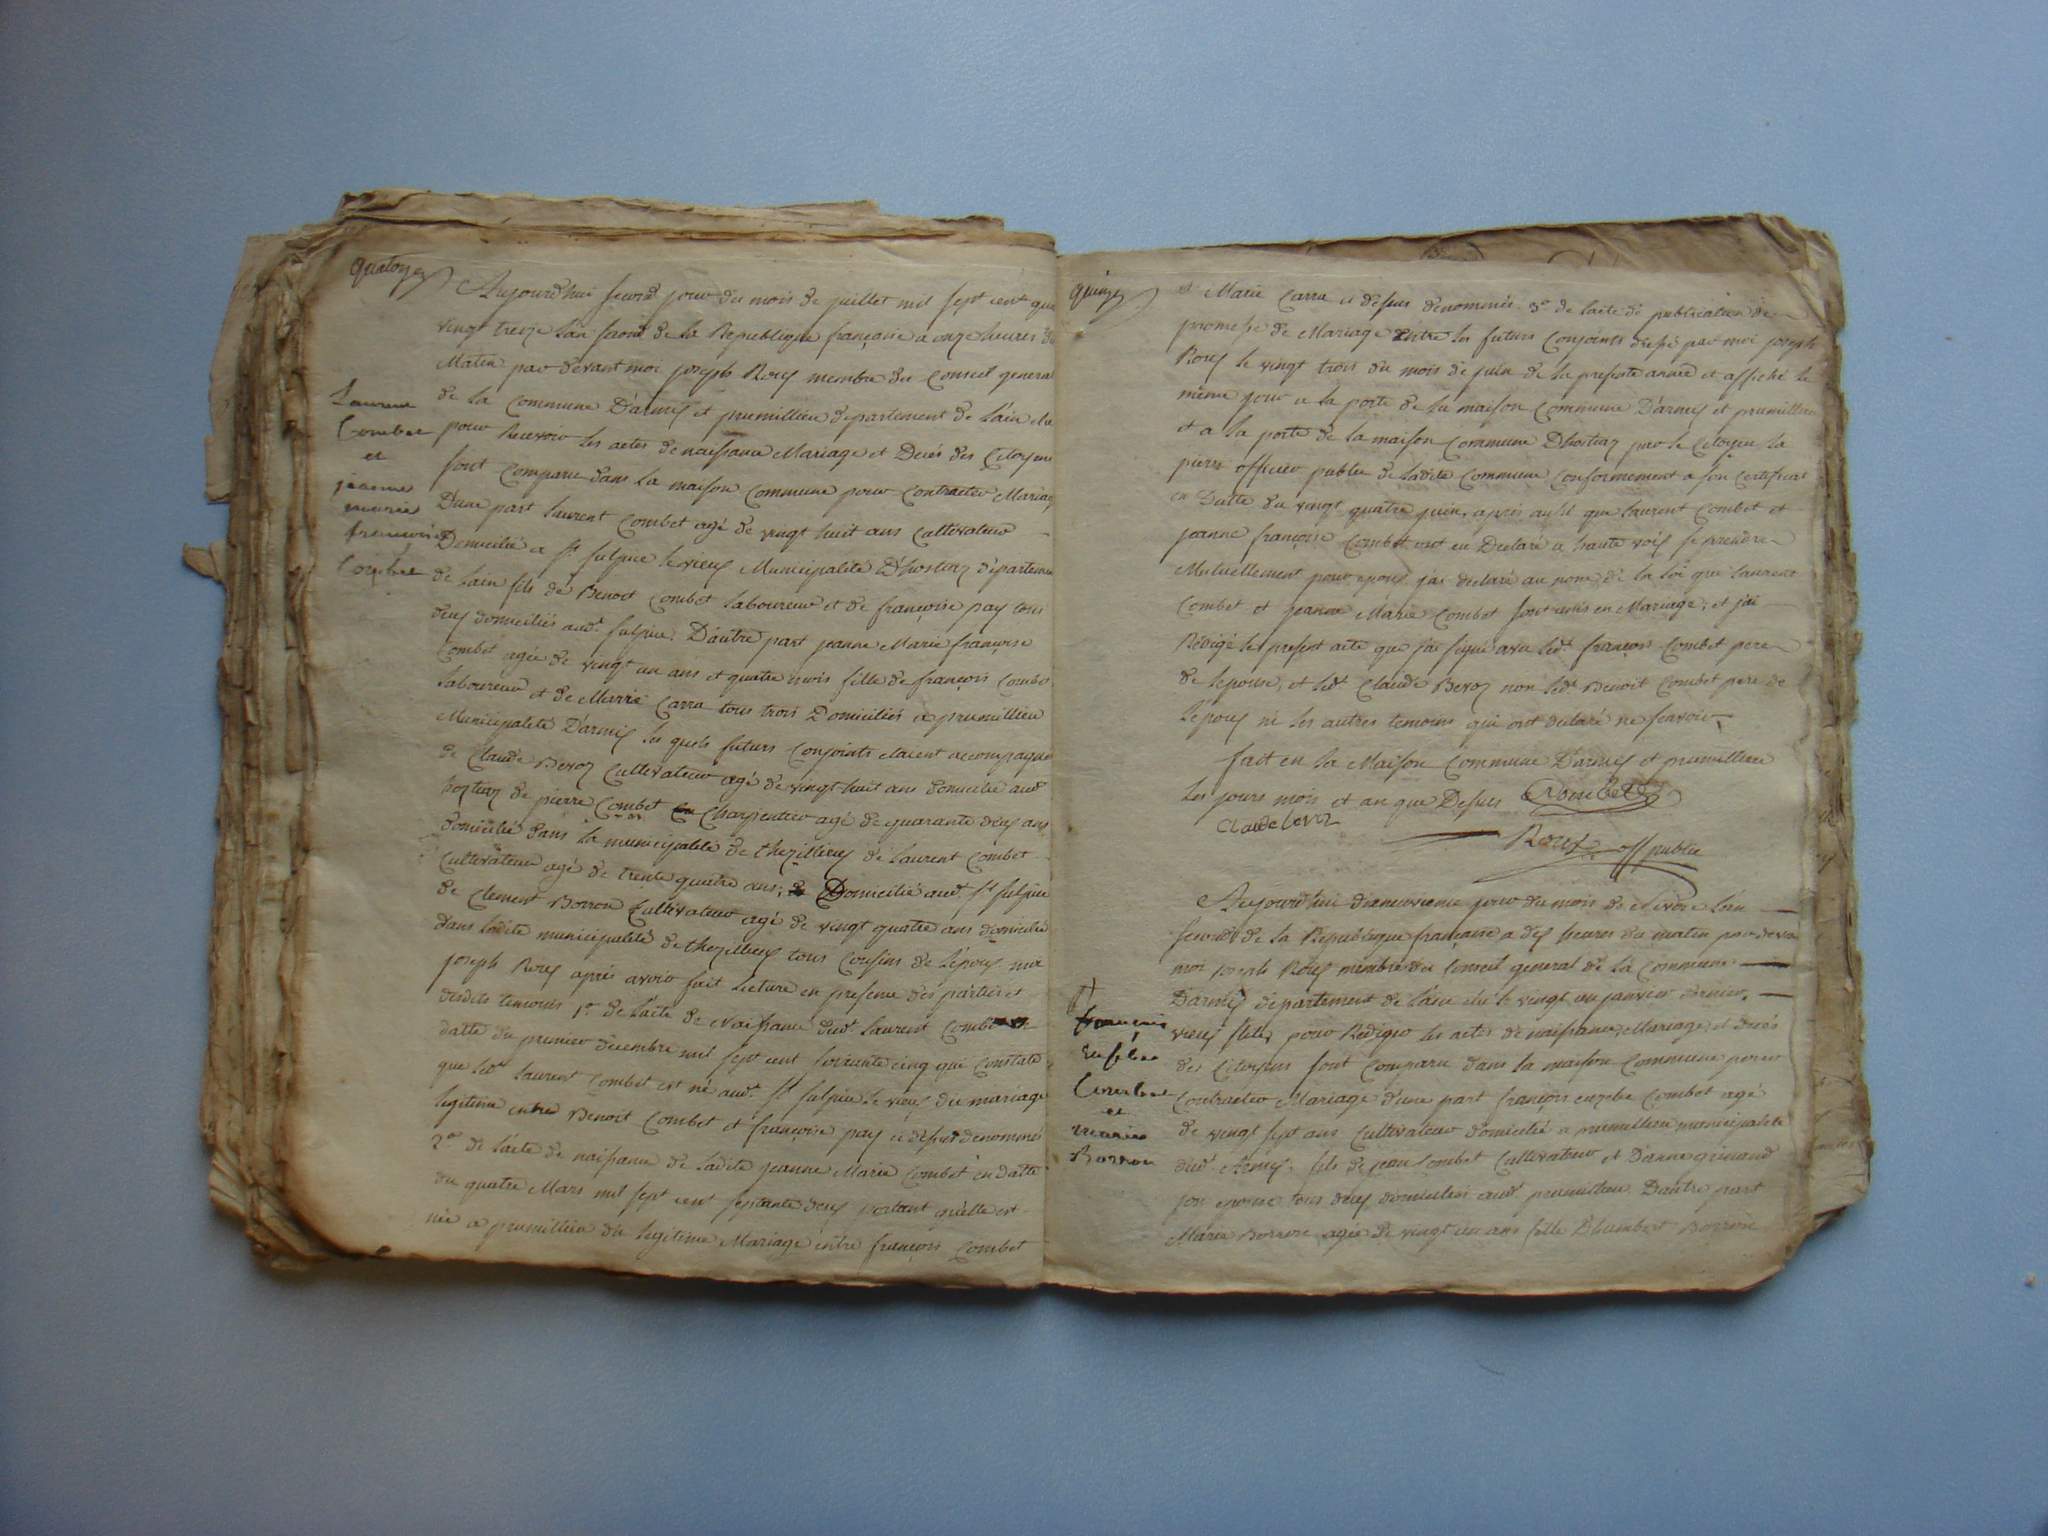 quatorze
Aujourd'hui second jour du mois de juillet mil sept cent quatre
vingt treize l'an second de la Republique française a onze heures du
Matin par devant moi joseph Roux membre du Conseil general
de la Commune D'armix et premillieu departement de l'ain elu
pour Recevoir les actes de naissance Mariage et Decés des Citoyens
sont Comparu dans la maison Commune pour Contracter Mariage
D'une part laurent Combet agé de vingt huit ans Cultivateur
Domicilié a St sulpice le vieux Municipalité D'hostiaz département
de l'ain fils de Benoit Combet laboureur et de françoise pay tous
deux domiciliés audt sulpice. D'autre part jeanne Marie françoise
Combet agée de vingt un ans et quatre mois fille de françois Combet
laboureur et de Marie Carra tous trois Domiciliés a premillieu
Municipalité D'armix les quels futurs Conjoints etaient accompagnés
de Claude Beroz Cultivateur agé de vingt huit ans domicilié audt
hoztiaz de pierre Combet Charpentier agé de quarante deux ans
domicilié dans la municipalité de thezillieux de Laurent Combet
Cultivateur agé de trente quatre ans, Domicilié audt St sulpice
de Clement Borron Cultivateur agé de vingt quatre ans domicilié
dans ladite municipalité de thezillieux tous Cousins de l'epoux moi
joseph Roux aprés avoir fait lecture en presence des parties et
desdits temoins 1º de l'acte de Naissance dudt laurent Combet
datte du premier decembre mil sept cent soixante cinq qui Constate
que ledt laurent Combet est né audt St sulpice le vieux du mariage
legitime entre Benoit Combet et françoise pay ci dessus denommés
2º de l'acte de naissance de ladite jeanne Marie Combet en datte
du quatre Mars mil sept cent septante deux portant qu'elle est
née a premillieu du legitime Mariage entre françois Combet
Laurent
Combet
et
jeanne
marie
francoise
Combet
quinze
et Marie Carra ci dessus denommés 3º de l'acte de publication de
promesse de Mariage Entre les futurs Conjoints dressé par moi joseph
Roux le vingt trois du mois de juin de la presente année et affiché le
même jour a la porte de la maison Commune D'armix et premillieu
et a la porte de la maison Commune D'hostiaz par le Citoyen la
pierre officier public de ladite Commune Conformement a son Certificat
en Datte du vingt quatre juin, aprés aussi que laurent Combet et
jeanne françoise Combet ont eu Declaré a haute voix se prendre
Mutuellement pour epoux j'ai declaré au nom de la loi que laurent
Combet et jeanne Marie Combet sont unis en Mariage, et j'ai
Rédigé le present acte que j'ai signé avec ledt françois Combet pere
de l'epouse, et ledt Claude Beroz non ledt Benoit Combet pere de
l'epoux ni les autres temoins qui ont declaré ne savoir
fait en la Maison Commune D'armix et premillieu
les jours mois et an que Dessus Combet
Claude beroz
Roux off public
Aujourd'hui dixneuvieme jour du mois de Nivose l'an
second de la Republique française a dix heures du matin par devant
moi joseph Roux membre du Conseil general de la Commune
D'armix departement de l'ain elu le vingt un janvier dernier
vieux stile, pour Rediger les actes de naissance, Mariage, et decés
des Citoyens sont Comparu dans la maison Commune pour
Contracter Mariage d'une part françois euzebe Combet agé
de vingt sept ans Cultivateur domicilié a premillieu municipalité
dudt Armix, fils de jean Combet Cultivateur et D'anne grinand
son epouse tous deux domiciliés audt premillieu D'autre part
Marie Borron agée de vingt un ans fille D'humbert Borron
françois
Eusebe
Combet
et
marie
Borron